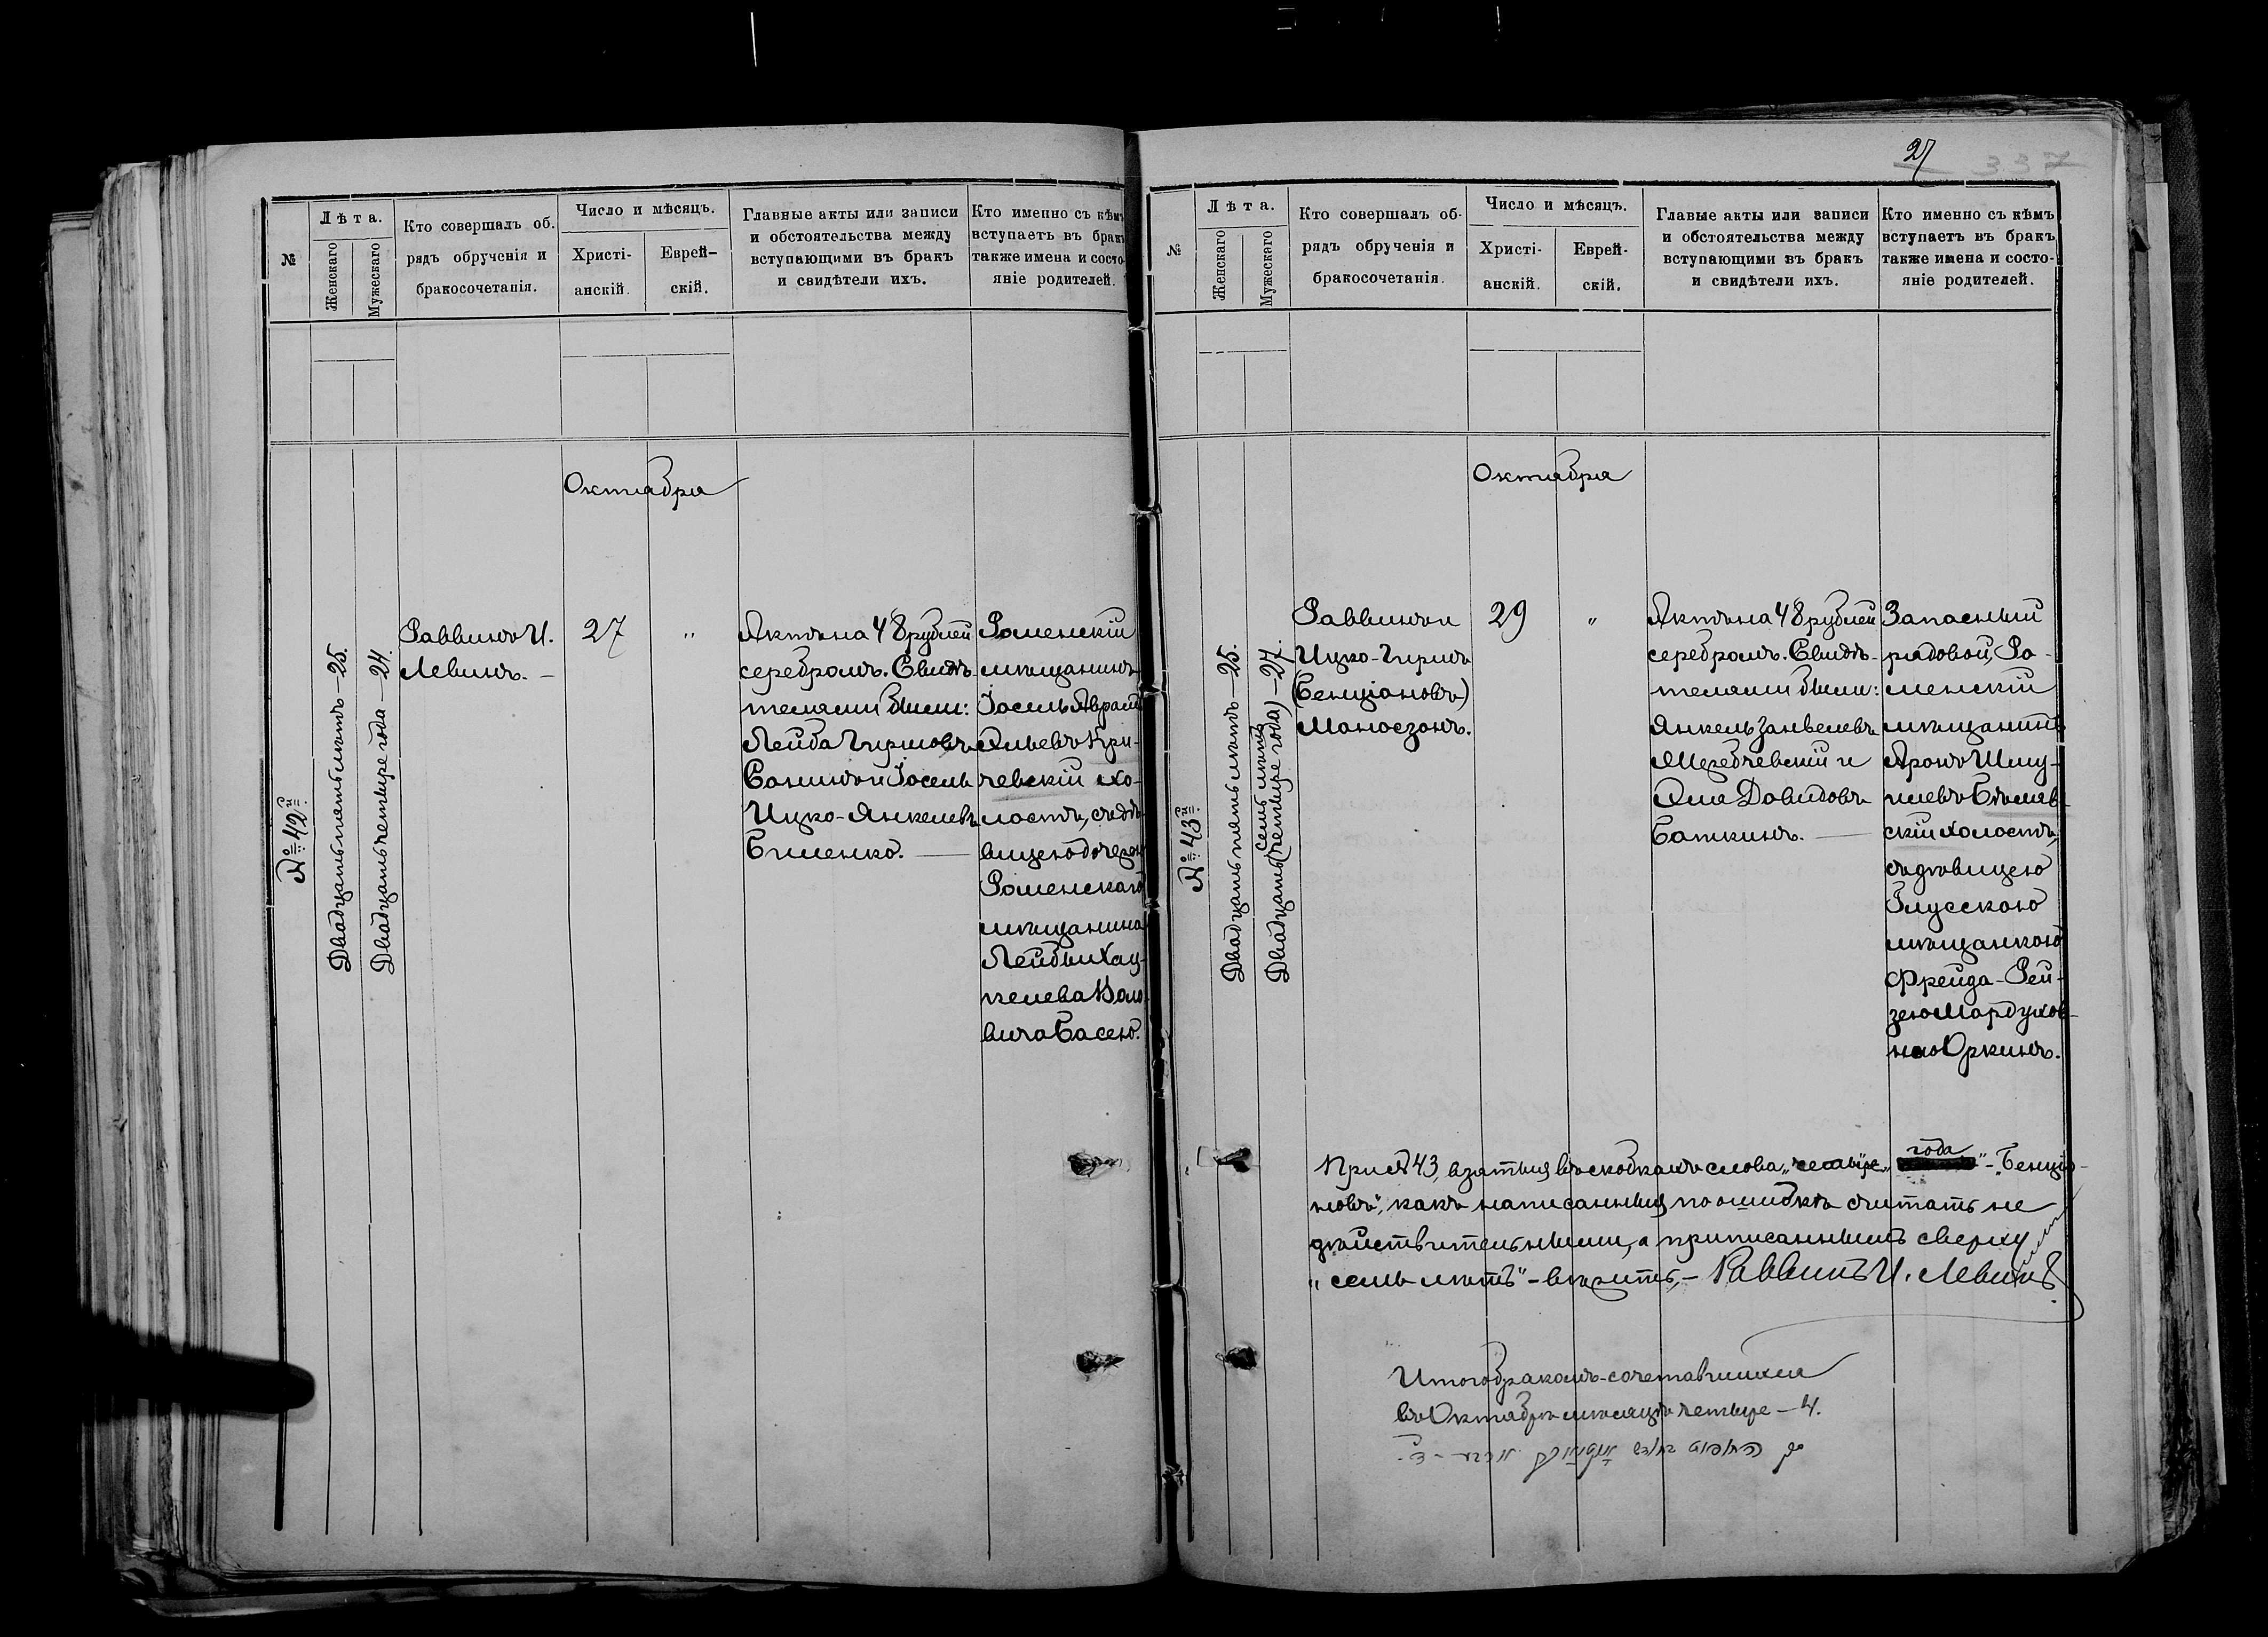 №
Лѣта.
Женскаго
Мужескаго
Кто совершалъ об-
рядъ обрученія и
бракосочетанія.
Число и мѣсяцъ.
Христі-
анскій.
Еврей-
скій.
Главные акты или записи
и обстоятельства между
вступающими въ бракъ
и свидѣтели ихъ.
Кто именно съ кѣмъ
вступаетъ въ бракъ
также имена и состо-
яніе родителей.
Октября
№ 42й.
Двадцать пять лѣтъ – 25.
Двадцать четыре года – 24.
Раввинъ И.
Левинъ. –
27
"
Актъ на 48 рублей
серебромъ. Свидѣ-
телями были:
Лейба Гиршовъ
Сонинъ и Іосель
Ицко-Янкелевъ
Биленко. —
Роменскій
мѣщанинъ
Іосель Аврамъ
Ельевъ Кри-
чевскій хо-
лостъ, съ дѣ-
вицею дочерью
Роменскаго
мѣщанина
Лейбы Хац-
келева
Басею.
27
337
№
Лѣта.
Женскаго
Мужескаго
Кто совершалъ об-
рядъ обрученія и
бракосочетанія.
Число и мѣсяцъ.
Христі-
анскій.
Еврей-
скій.
Главые акты или записи
и обстоятельства между
вступающими въ бракъ
и свидѣтели ихъ.
Кто именно съ кѣмъ
вступаетъ въ бракъ
также имена и состо-
яніе родителей.
Октября
№ 43й.
Двадцать пять лѣтъ – 25.
семь лѣтъ
Двадцать (четыре года) – 27.
Раввинъ и
Ицко-Гиршъ
(Бенціоновъ)
Маноезонъ.
29
"
Актъ на 48 рублей
серебромъ. Свидѣ-
телями были:
Янкель Занвелевъ
Межебчевскій и
Еля Довидовъ
Баткинъ. —
Запасный
рядовой, Ро-
менскій
мѣщанинъ
Аронъ Шму-
илевъ Бѣляв-
скій холостъ,
съ дѣвицею
Глусскою
мѣщанкою
Фрейда-Рей-
зею Мордухов-
ною Оркинъ.
При № 43, взятыя въ скобкахъ слова „четыре„ года" – „Бенціо-
новъ", какъ написанныя по ошибкѣ считать не
дѣйствительными, а приписаннымъ сверху
„семь лѣтъ" – вѣрить. – Раввинъ И. Левинъ
Итого бракомъ-сочетавшихся
въ Октябрѣ мѣсяцѣ четыре – 4.